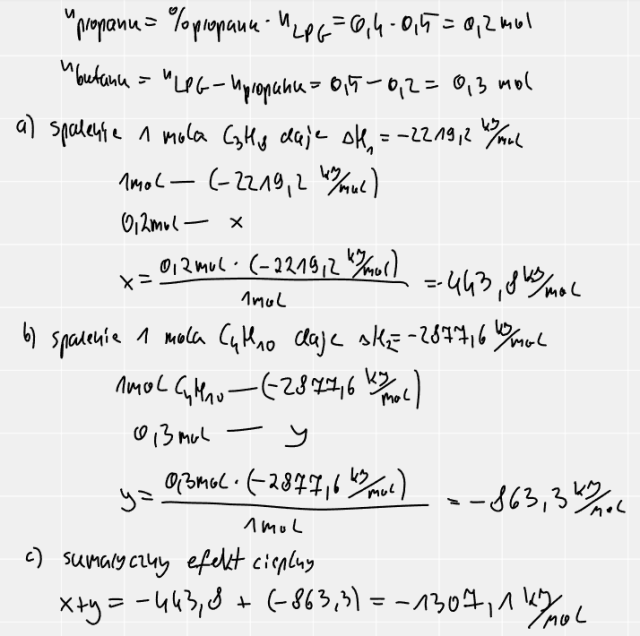 n propanu = % propanu · n LPG = 0,4 · 0,5 = 0,2 mol
n butanu = n LPG - n propanu = 0,5 - 0,2 = 0,3 mol
a) spalenie 1 mola C3H8 daje ΔH1 = -2219,2 kJ/mol
1mol — (-2219,2 kJ/mol)
0,2mol — x
x = 0,2mol · (-2219,2 kJ/mol) / 1mol = -443,8 kJ/mol
b) spalenie 1 mola C4H10 daje ΔH2 = -2877,6 kJ/mol
1mol C4H10 — (-2877,6 kJ/mol)
0,3mol — y
y = 0,3mol · (-2877,6 kJ/mol) / 1mol = -863,3 kJ/mol
c) sumaryczny efekt cieplny
x+y = -443,8 + (-863,3) = -1307,1 kJ/mol